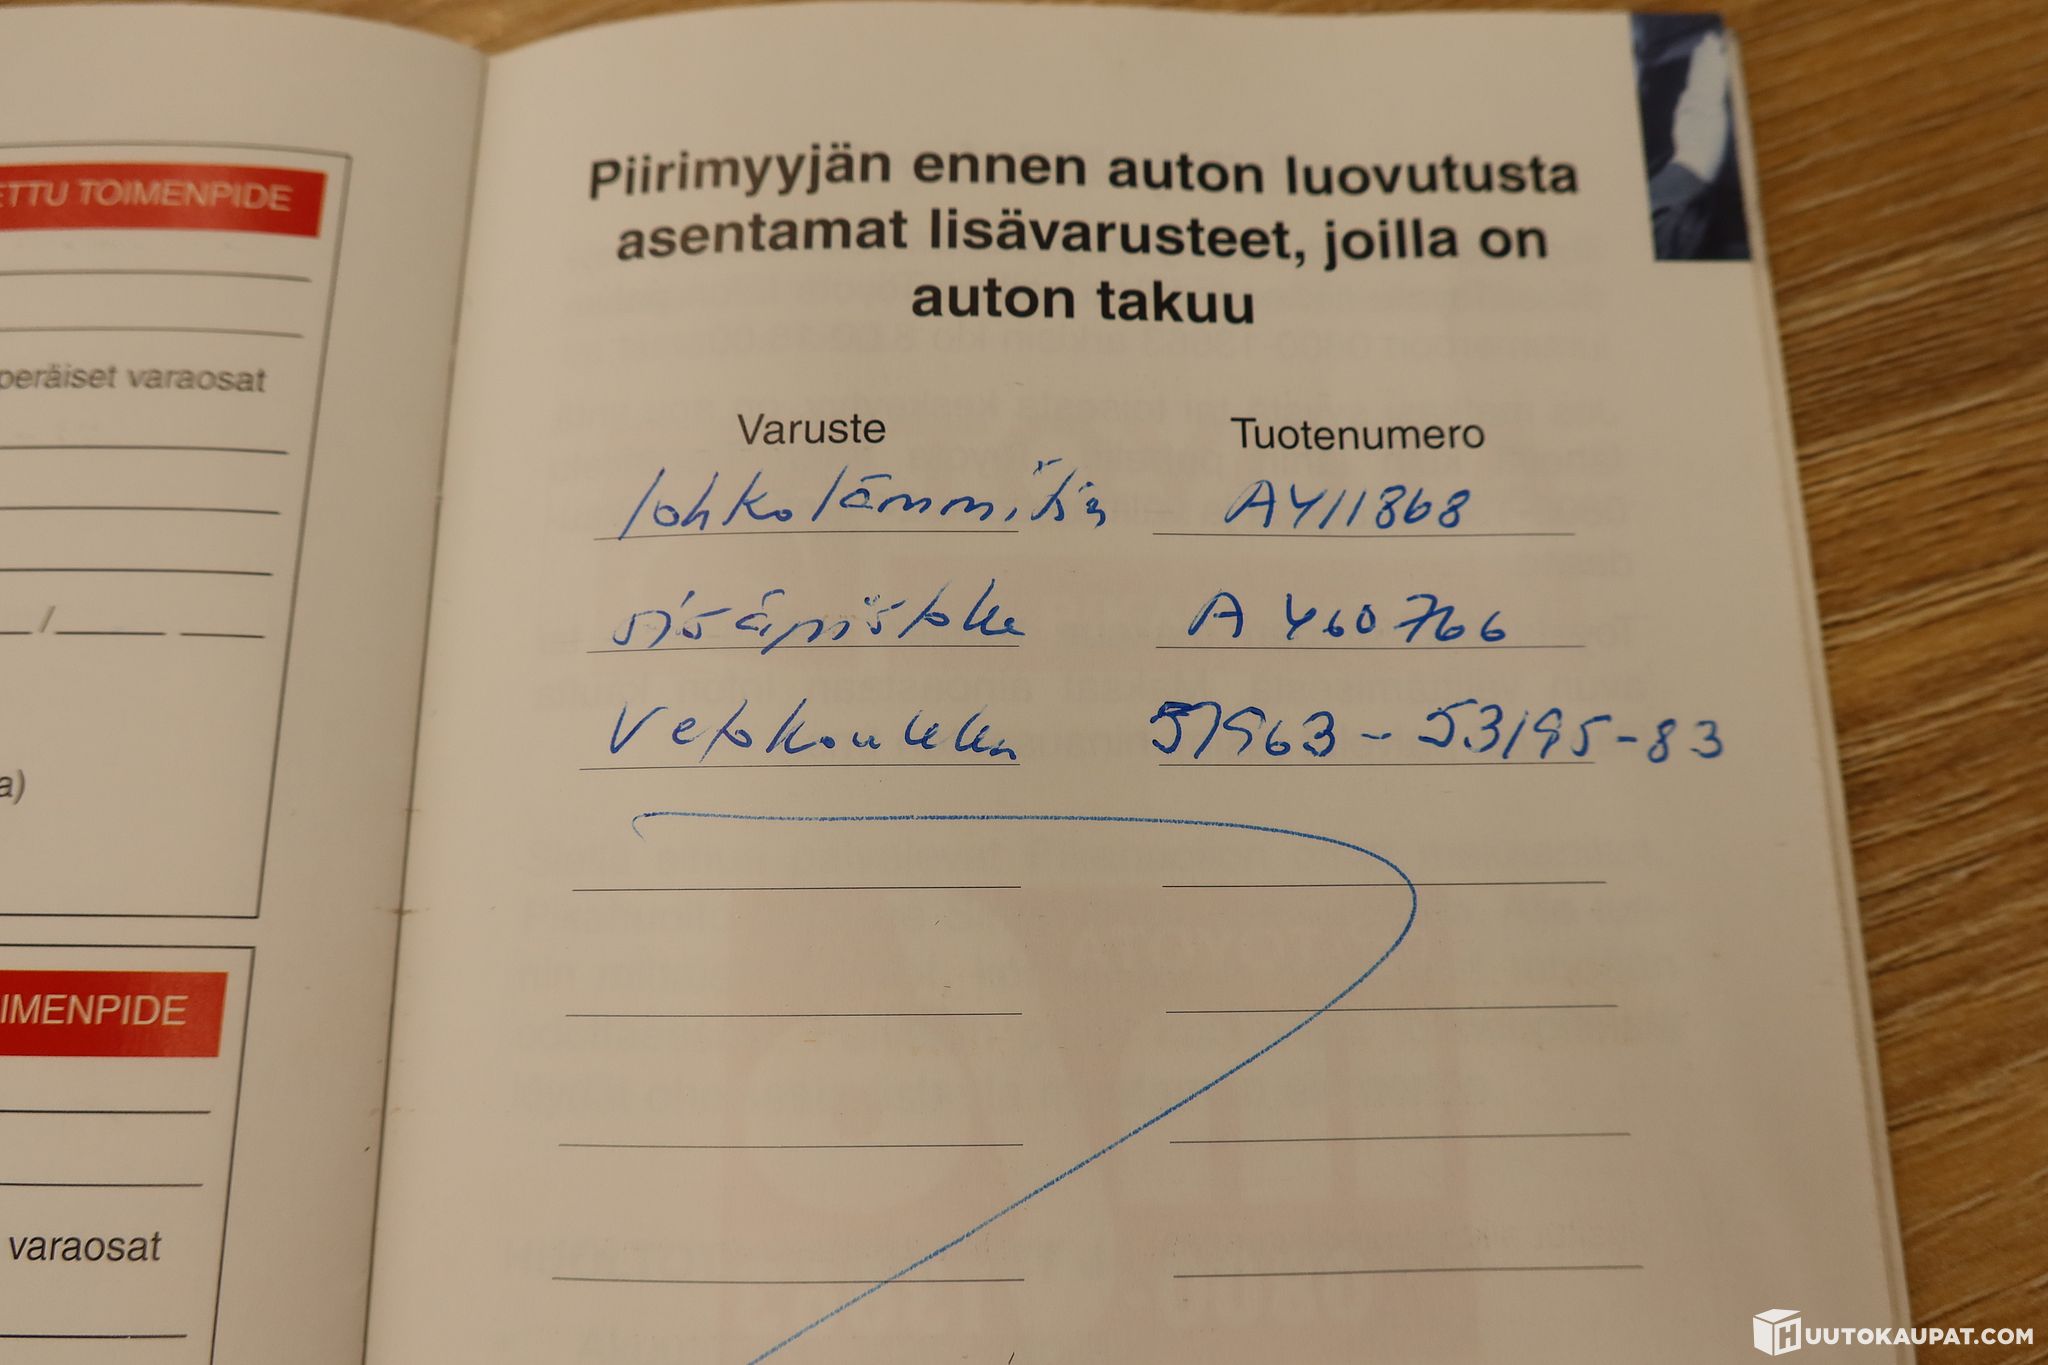 ETTU TOIMENPIDE
peräiset varaosat
/
a)
IMENPIDE
varaosat
Piirimyyjän ennen auton luovutusta
asentamat lisävarusteet, joilla on
auton takuu
Varuste Tuotenumero
lohkolämmitin A411868
sisäpistoke A 460766
Vetokoukku 57963-53195-83
HUUTOKAUPAT.COM